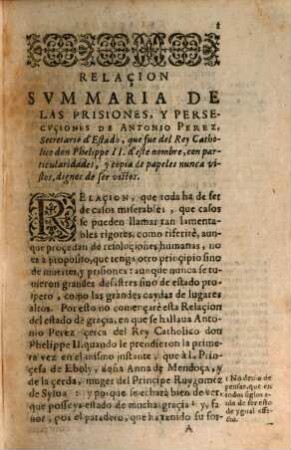 1
RELAÇION
SVMMARIA DE
LAS PRISIONES, Y PERSE-
CVÇIONES DE ANTONIO PEREZ,
Secretario d'Estado, que fue del Rey Catho-
lico don Phelippe II. d'este nombre, con par-
ticularidades, y copia de papeles nunca vi-
stos, dignos de ser vistos.
RELAÇION, que toda ha de ser
de casos miserables, que casos
se pueden llamar tan lamenta-
bles rigores, como riferirè, aun-
que procedan de resoluçiones humanas, no
es a proposito, que tenga otro principio sino
de muertes, y prisiones: aunque nunca se tu-
uieron grandes desastres sino de estado pros-
pero, como las grandes caydas de lugares
altos. Por esto no començarè esta Relaçion
del estado de graçia, en que se hallaua Anton
Perez çerca del Rey Catholico don
Phelippe II. quando le prendieron la prime-
ra vez en el mismo instante, que à L. Prin-
çesa de Eboly, doña Anna de Mendoça, y
de la çerda, muger del Principe Ruygomez
de Sylua: y porque se echarà bien de ver,
que posseya estado de mucha graçia, y fa-
uor, por el paradero, que ha tenido su for-
1 No deuia de
pensar, que en
todos siglos
auia de ser esto
de ygual effe-
cto.
A